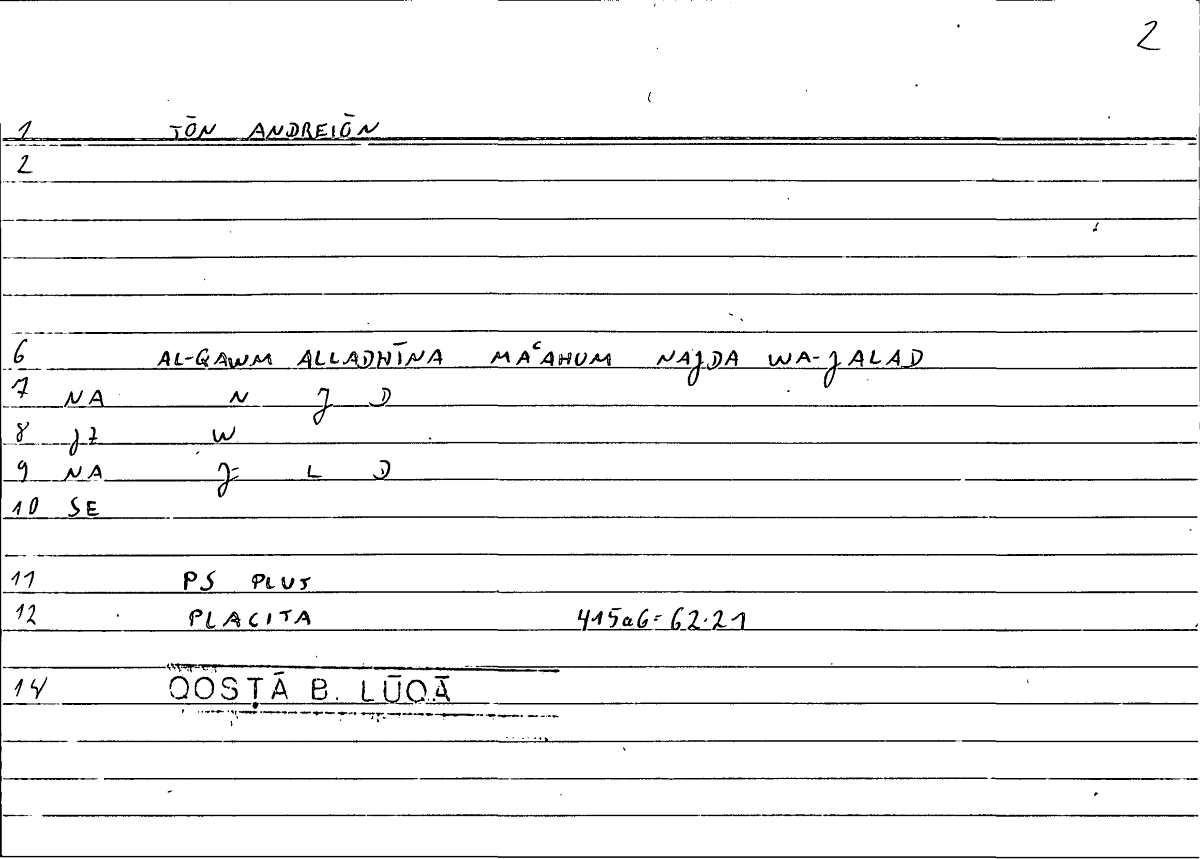 2
1 TŌN ANDREIŌN
2
6 AL-QAWM ALLADHĪNA MAʿAHUM NAJDA WA-JALAD
7 NA N J D
8 JZ W
9 NA J L D
10 SE
11 PS PLUT
12 PLACITA 415a6=62.21
14 QOSṬĀ B. LŪQĀ